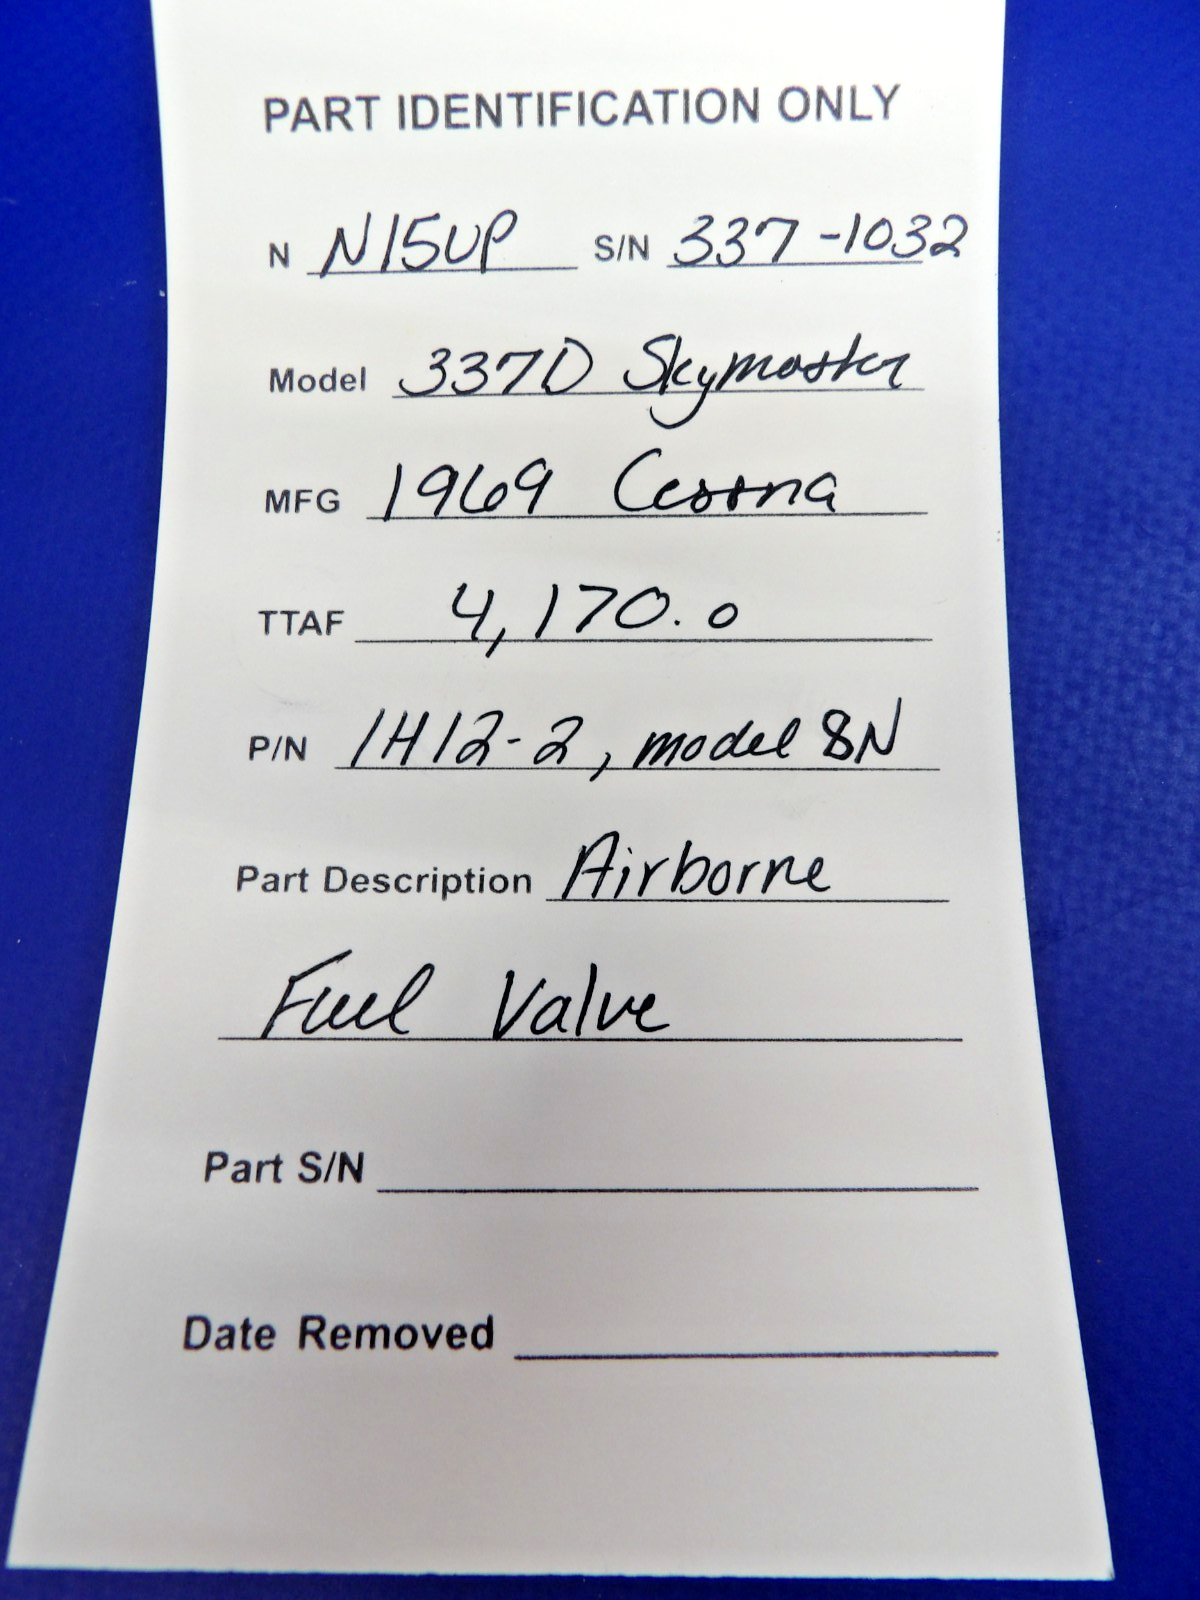 PART IDENTIFICATION ONLY
N N15UP S/N 337-1032
Model 337D Skymaster
MFG 1969 Cessna
TTAF 4,170.0
P/N 1H12-2, model 8N
Part Description Airborne
Fuel Valve
Part S/N
Date Removed